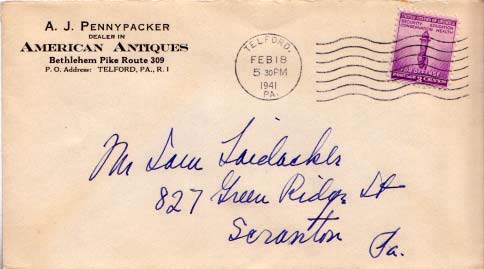 A. J. PENNYPACKER
DEALER IN
AMERICAN ANTIQUES
Bethlehem Pike Route 309
P. O. Address: TELFORD, PA., R. 1
TELFORD.
FEB 18
5 30 PM
1941
PA.
UNITED STATES OF AMERICA
SECURITY EDUCATION
HEALTH
FOR DEFENSE
3 CENTS
Mr Sam Laidacker
827 Green Ridge St
Scranton Pa.